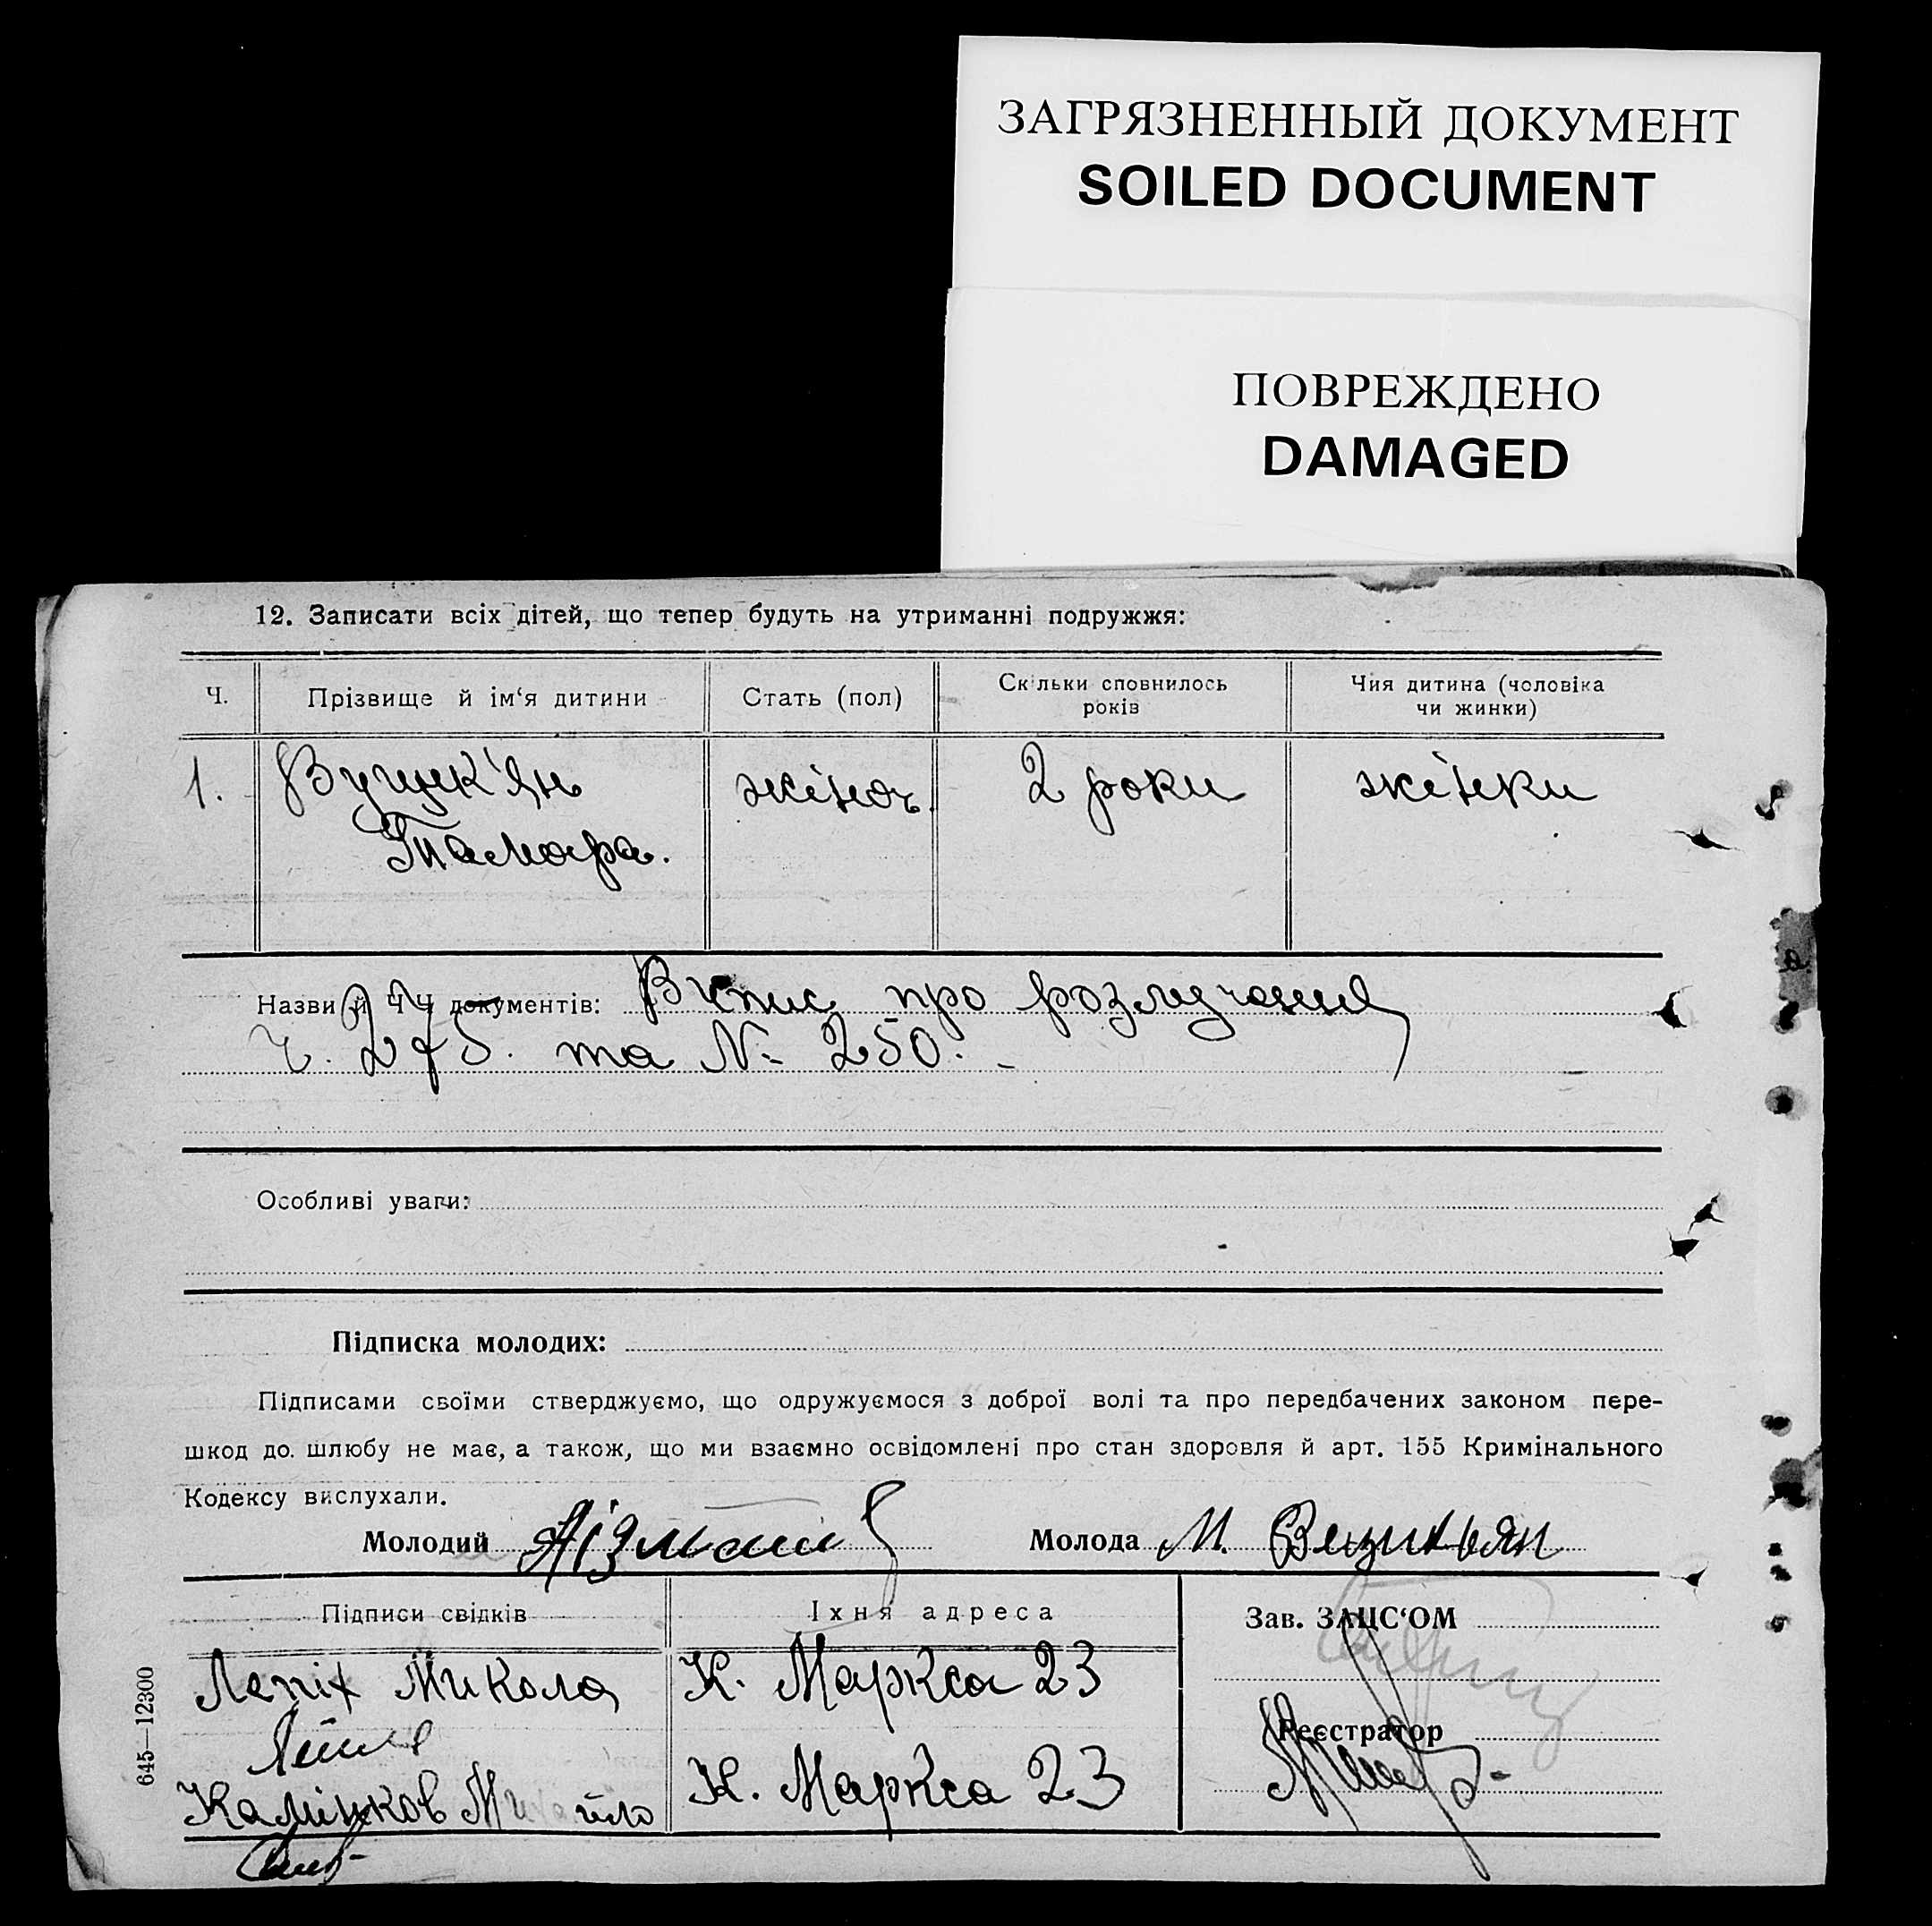 ЗАГРЯЗНЕННЫЙ ДОКУМЕНТ
SOILED DOCUMENT
ПОВРЕЖДЕНО
DAMAGED
12. Записати всіх дітей, що тепер будуть на утриманні подружжя:
Ч. Прізвище й ім‘я дитини Стать (пол) Скільки сповнилось років Чия дитина (чоловіка чи жинки)
1. жіноч. 2 роки жінки
Тамара.
Назви й Ч Ч документів: Випис про розлучення
ч. 275. та № 250.
Особливі уваги:
Підписка молодих:
Підписами своїми стверджуємо, що одружуємося з доброї волі та про передбачених законом пере-
шкод до шлюбу не має, а також, що ми взаємно освідомлені про стан здоровля й арт. 155 Кримінального
Кодексу вислухали.
Молодий Молода М.
Підписи свідків Їхня адреса Зав. ЗАЦС‘ОМ
Лепіх Микола К. Маркса 23
Реєстратор
Калінков Михайло К. Маркса 23
645—12300